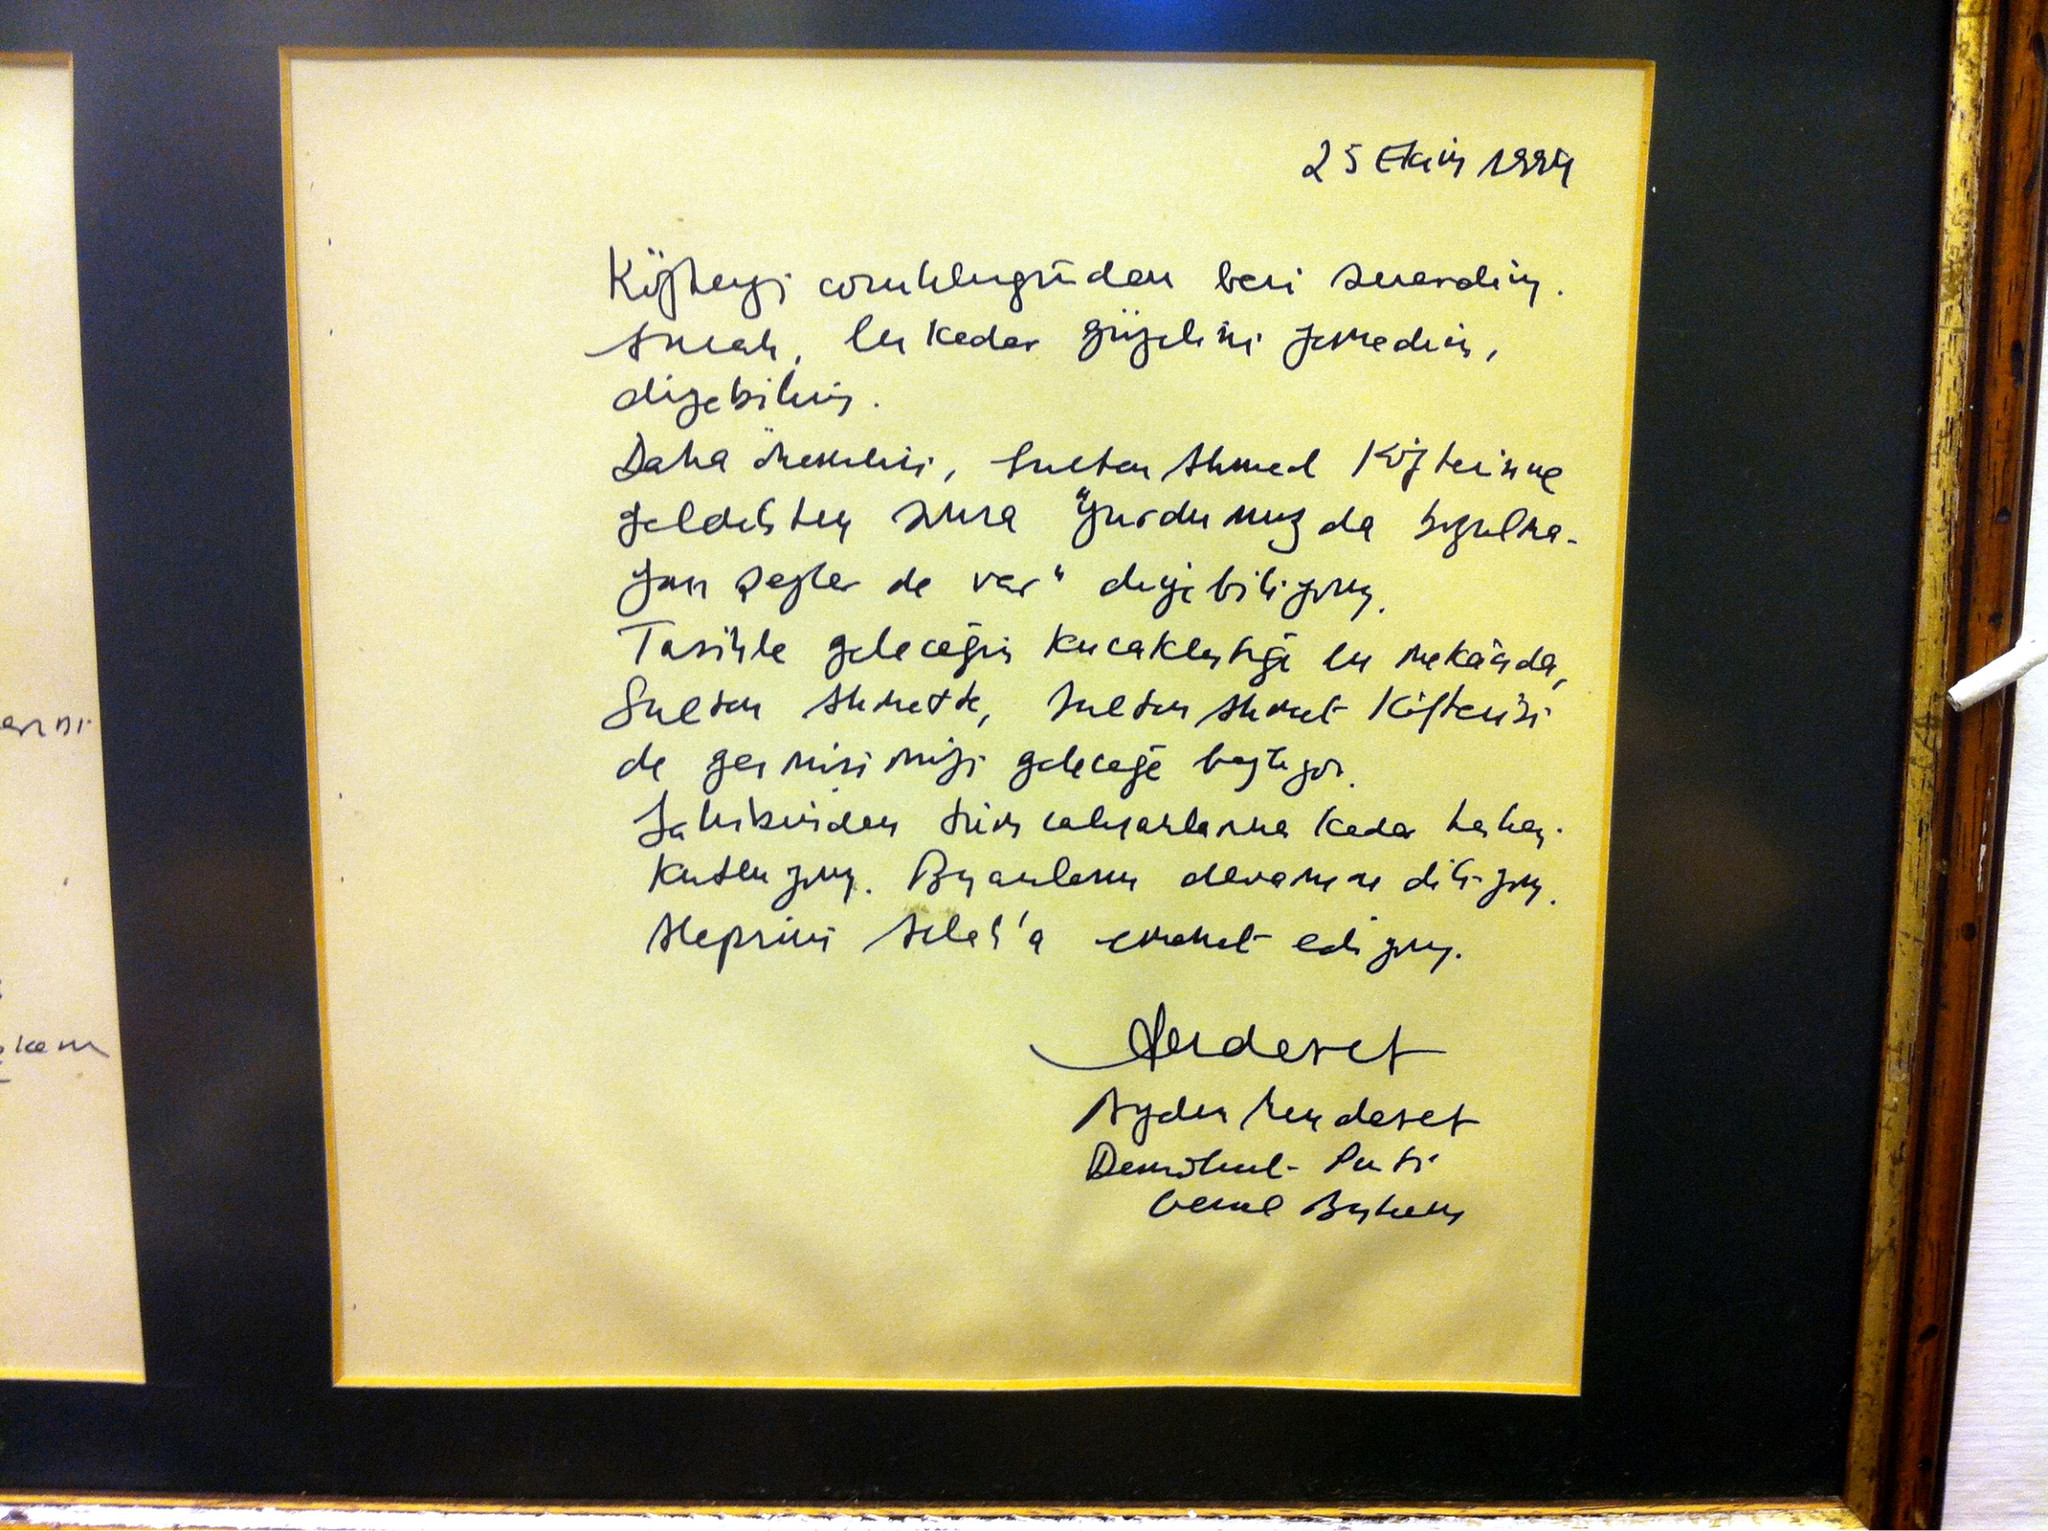 25 Ekim 1994
Köfteyi çocukluğumdan beri severdim.
Ancak, bu kadar güzelini yemedim,
diyebilirim.
Daha önemlisi, Sultan Ahmed Köftecisine
geldikten sonra "yurdumuzda bozulma-
yan şeyler de var" diyebiliyorum.
Tarihle geleceğin kucaklaştığı bu mekânda,
Sultan Ahmette, Sultan Ahmet Köftecisi
de geçmişimizi geleceğe bağlıyor.
Sahibinden tüm çalışanlarına kadar herkesi
kutluyorum. Başarıların devamını diliyorum.
Hepsini Allah'a emanet ediyorum.
Menderes
Aydın Menderes
Demokrat Parti
Genel Başkanı